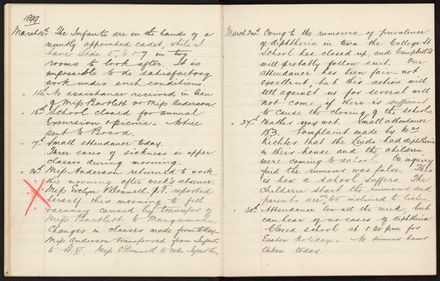 1899
March 13th The Infants are in the hands of a
newly appointed cadet while I
have Stds. 5, 6 & 7 in two
rooms to look after. It is
impossible to do satisfactory
work under such conditions.
" 14th No assistance received in lieu
of Miss Bartlett or Miss Anderson.
" 15th School closed for annual
Excursion & picnic. Notice
sent to Board.
" 17th Small attendance today.
Three cases of sickness in upper
classes during morning.
" 20th Miss Anderson returned to work
this morning after week's absence.
Miss Evelyn O'Donnell, P.T. reported
herself this morning to fill
vacancy caused by transfer of
Miss Bartlett to
Changes in classes made from today.
Miss Anderson transferred from Infants
to Miss O'Donnell to take Infant
March Owing to the rumours of prevalence
of diphtheria in town the College St
School has closed up, and Campbell St
will probably follow suit. Our
attendance has been fair not
excellent, but this action will
tell against us for several will
not come if there is sufficient
to cause the closing of the schools.
" 27th Wather and wet. Small attendance
183. Complaint made by Mrs
Richter that the Luds had diptheria
in their house and the children
were coming to school. On inquiry
find the rumour was false. This
is how a school suffers. The
children start the rumours and
parents are too inclined to listen.
" 30th Attendance low all the week but
can hear of no cases of diphtheria
Closed school at 1:30 p.m. for
Easter Holidays. No dinner hour
taken today.